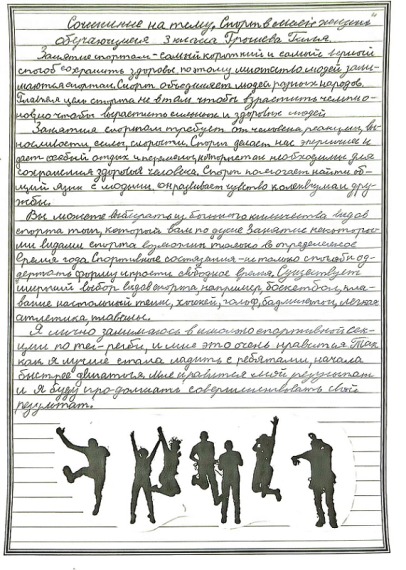 Сочинение на тему "Спорт в моей жизни"
обучающиеся 3 класса Грошева Юлия.
Занятие спортом - самый короткий и самый верный
способ сохранить здоровье, поэтому множество людей зани-
маются спортом. Спорт объединяет людей разных народов.
Главная цель спорта не в том чтобы взрастить чемпио-
нов, но чтобы вырастить сильных и здоровых людей.
Занятия спортом требует от человека, реакции, вы-
носливости, силы, скорости. Спорт делает нас энергичнее и
дает особый отдых и перемену, которые так необходимы для
сохранения здоровья человека. Спорт помогает найти об-
щий язык с людьми, он развивает чувство коллективизма и дру-
жбы.
Вы можете выбрать из большого количества видов
спорта тот, который вам по душе. Занятие некоторы-
ми видами спорта возможно только в определенное
время года. Спортивное состязание - не только способ под-
держать форму и провести свободное время. Существует
широкий выбор видов спорта, например, баскетбол, пла-
вание настольный теннис, хоккей, гольф, бадминтон, легкая
атлетика, плавание.
Я лично занимаюсь в школьной спортивной сек-
ции по тег-регби, и мне это очень нравится. Так
как я лучше стала ладить с ребятами, начала
быстрее двигаться. Мне нравится мой результат
и я буду продолжать совершенствовать свой
результат.